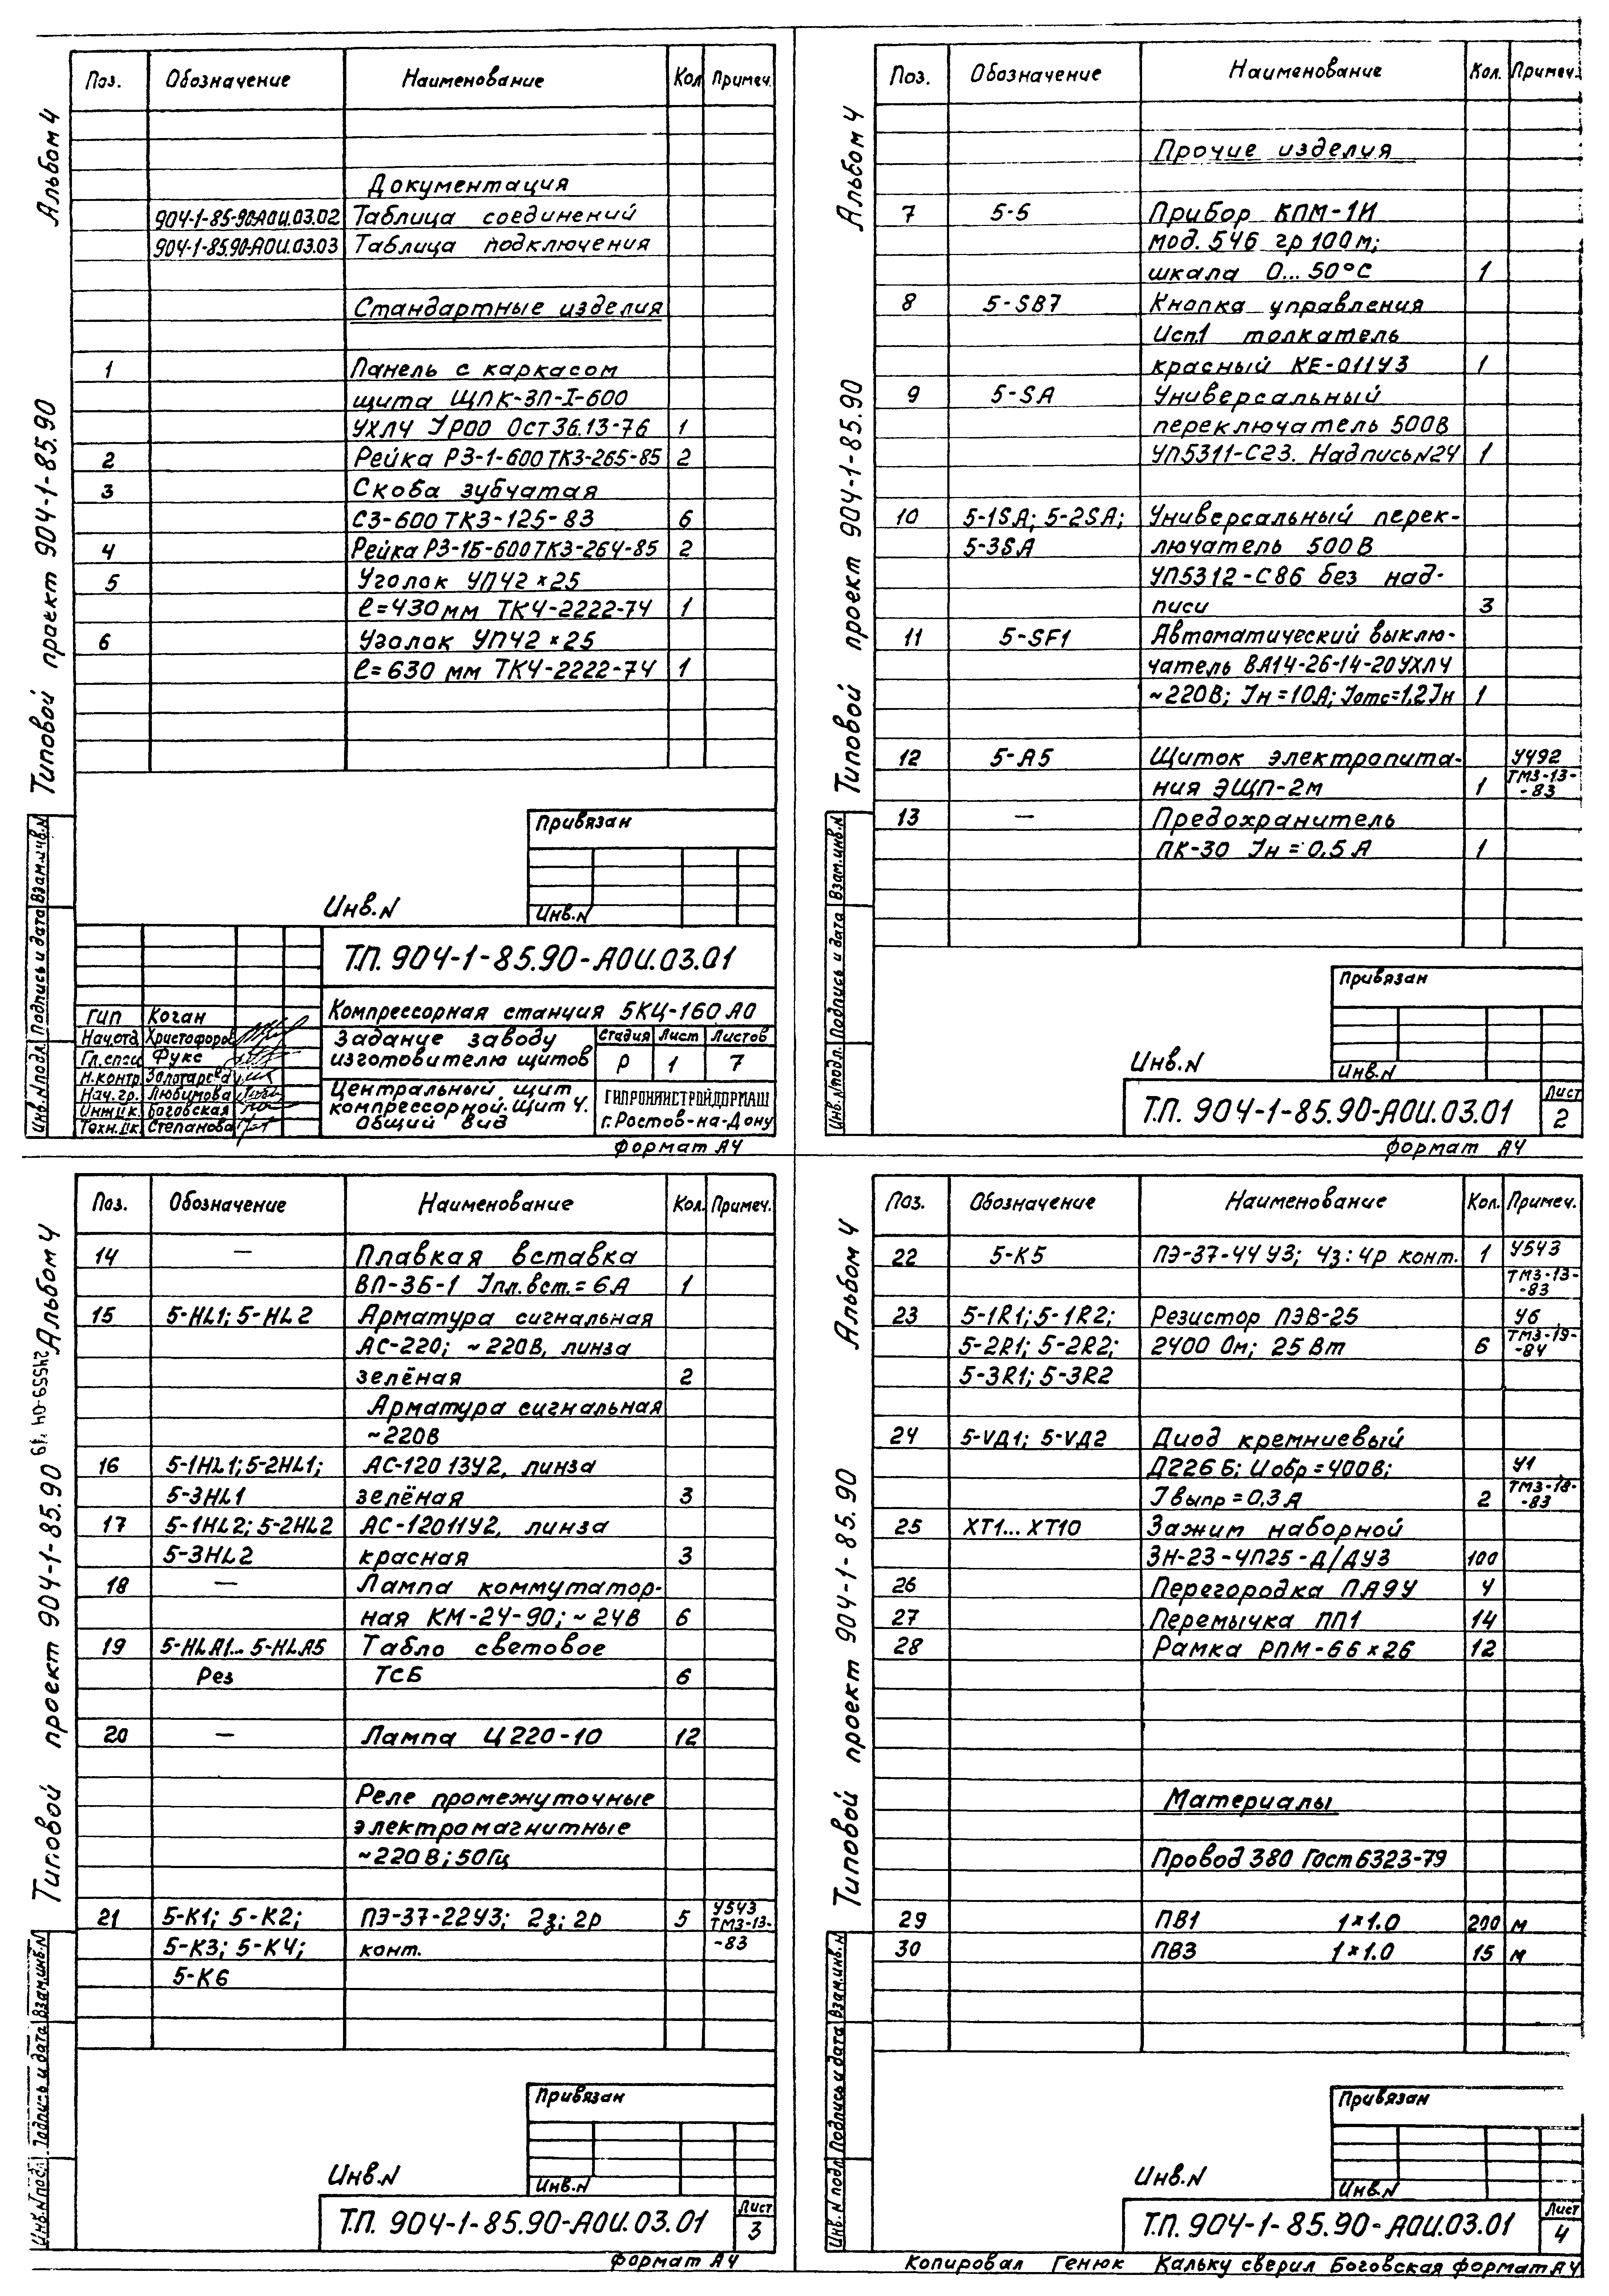 Альбом 4
Типовой проект 904-1-85.90
Поз. Обозначение Наименование Кол Примеч.
Документация
904-1-85-90-АОИ.03.02 Таблица соединений
904-1-85.90-АОИ.03.03 Таблица подключения
Стандартные изделия
1 Панель с каркасом
щита ЩПК-ЗП-I-600
УХЛ4 УР00 Ост 36.13-76 1
2 Рейка РЗ-1-600 ТКЗ-265-85 2
3 Скоба зубчатая
СЗ-600 ТКЗ-125-83 6
4 Рейка РЗ-1Б-600 ТКЗ-264-85 2
5 Уголок УП42×25
ℓ=430 мм ТК4-2222-74 1
6 Уголок УП42×25
ℓ=630 мм ТК4-2222-74 1
Привязан
Инв.N
Инв.N
Взам.инв.N
Подпись и дата
Инв.N подл.
Т.П. 904-1-85.90-АОИ.03.01
Компрессорная станция 5КЦ-160 А0
ГИП Коган
Нач.отд Христофоров
Гл.спец Фукс
Н.контр. Золотарева
Нач.гр. Любимова
Инж.IIк. Боговская
Техн.IIк. Степанова
Задание заводу
изготовителю щитов
Стадия Лист Листов
Р 1 7
Центральный щит
компрессорной. Щит 4.
Общий вид
ГИПРОНИИСТРОЙДОРМАШ
г.Ростов-на-Дону
Формат А4
Альбом 4
Типовой проект 904-1-85.90
Поз. Обозначение Наименование Кол. Примеч.
Прочие изделия
7 5-5 Прибор КПМ-1И
мод. 546 гр 100м;
шкала 0...50°С 1
8 5-SB7 Кнопка управления
Исп.1 толкатель
красный КЕ-011У3 1
9 5-SA Универсальный
переключатель 500В
УП5311-С23. Надпись N24 1
10 5-1SA; 5-2SA; Универсальный перек-
5-3SA лючатель 500В
УП5312-С86 без над-
писи 3
11 5-SF1 Автоматический выклю-
чатель ВА14-26-14-20УХЛ4
~220В; Iн=10А; Iотс=1,2Iн 1
12 5-А5 Щиток электропита- У492
ния ЭЩП-2м 1 ТМ3-13-
-83
13 — Предохранитель
ПК-30 Iн=0,5А 1
Привязан
Инв.N
Инв.N
Взам.инв.N
Подпись и дата
Инв.N подл.
Т.П. 904-1-85.90-АОИ.03.01
Лист
2
Формат А4
Альбом 4
24559-04 19
Типовой проект 904-1-85.90
Поз. Обозначение Наименование Кол. Примеч.
14 — Плавкая вставка
ВП-3Б-1 Iпл.вст.=6А 1
15 5-HL1; 5-HL2 Арматура сигнальная
АС-220; ~220В, линза
зелёная 2
Арматура сигнальная
~220В
16 5-1HL1; 5-2HL1; АС-120 13У2, линза
5-3HL1 зелёная 3
17 5-1HL2; 5-2HL2 АС-12011У2, линза
5-3HL2 красная 3
18 — Лампа коммутатор-
ная КМ-24-90; ~24В 6
19 5-HLA1... 5-HLA5 Табло световое
Рез ТСБ 6
20 — Лампа Ц220-10 12
Реле промежуточные
электромагнитные
~220В; 50Гц
21 5-К1; 5-К2; ПЭ-37-22У3; 2з; 2р 5 У543
ТМ3-13-
5-К3; 5-К4; конт. -83
5-К6
Привязан
Инв.N
Инв.N
Взам.инв.N
Подпись и дата
Инв.N подл.
Т.П. 904-1-85.90-АОИ.03.01
Лист
3
Формат А4
Альбом 4
Типовой проект 904-1-85.90
Поз. Обозначение Наименование Кол. Примеч.
22 5-К5 ПЭ-37-44У3; 4з:4р конт. 1 У543
ТМ3-13-
-83
23 5-1R1; 5-1R2; Резистор ПЭВ-25 У6
5-2R1; 5-2R2; 2400 Ом; 25 Вт 6 ТМ3-19-
-84
5-3R1; 5-3R2
24 5-VД1; 5-VД2 Диод кремниевый
Д226Б; Uобр=400В; У1
Iвыпр=0,3А 2 ТМ3-18-
-83
25 ХТ1... ХТ10 Зажим наборной
ЗН-23-4П25-Д/ДУ3 100
26 Перегородка ПА9У 4
27 Перемычка ПП1 14
28 Рамка РПМ-66×26 12
Материалы
Провод 380 Гост 6323-79
29 ПВ1 1×1.0 200 м
30 ПВ3 1×1.0 15 м
Привязан
Инв.N
Инв.N
Взам.инв.N
Подпись и дата
Инв.N подл.
Т.П. 904-1-85.90-АОИ.03.01
Лист
4
Копировал Генюк Кальку сверил Боговская формат А4